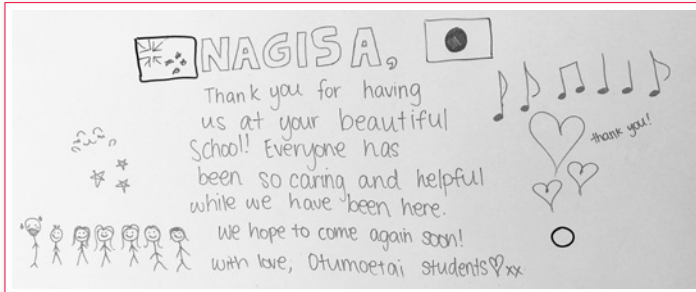 NAGISA,
Thank you for having
us at your beautiful
School! Everyone has
been so caring and helpful
while we have been here.
We hope to come again soon!
with love, Otumoetai students♡xx
thank you!